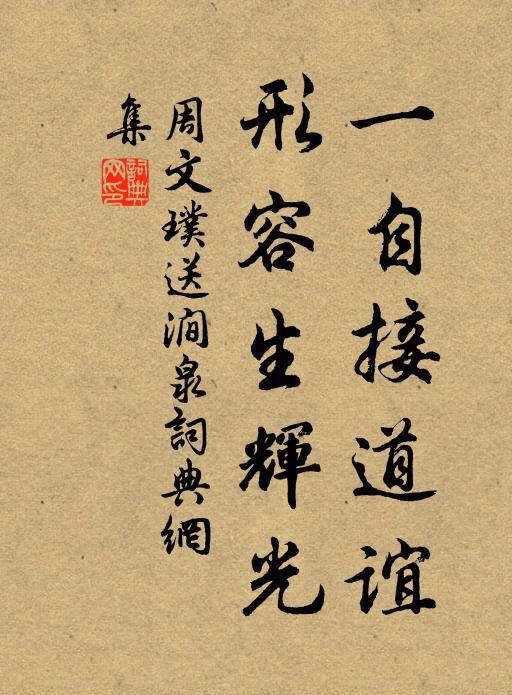 一自接道誼
形容生輝光
周文璞送澗泉詞典網
集
詞典
网印